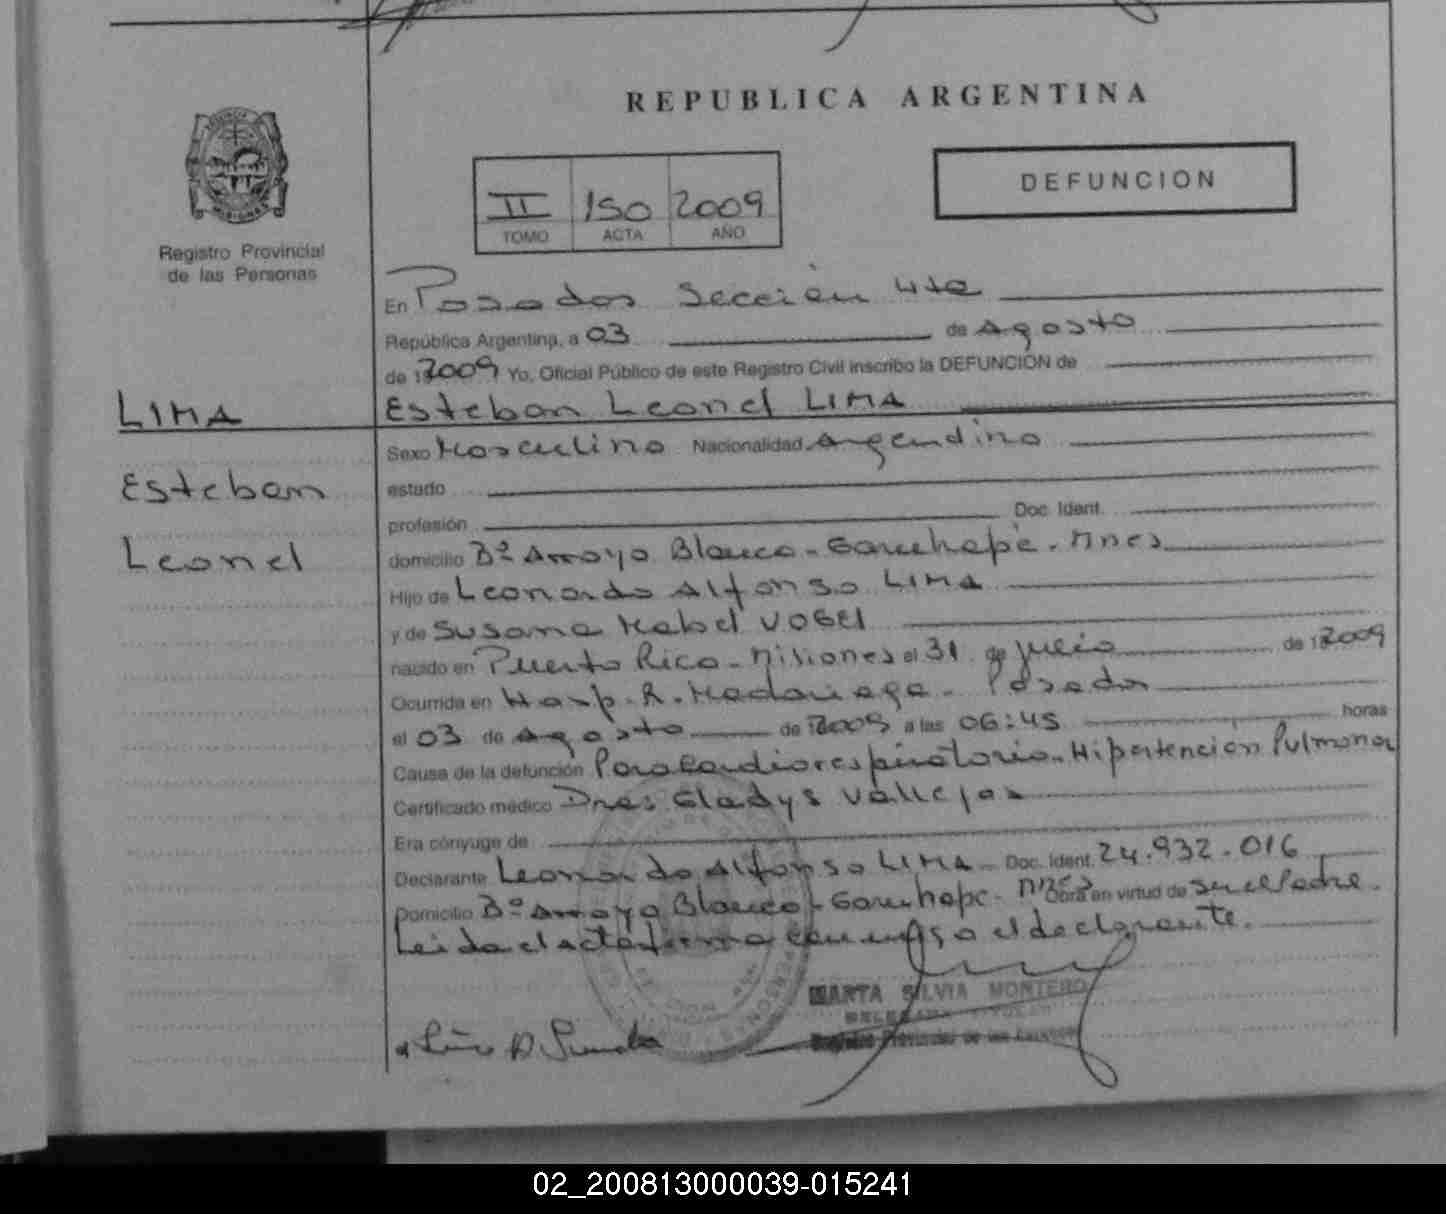 REPUBLICA ARGENTINA
DEFUNCION
II 150 2009
TOMO ACTA AÑO
MISIONES
Registro Provincial
de las Personas
En Posadas Sección 4ta
República Argentina, a 03 de Agosto
de 19 2009 Yo, Oficial Público de este Registro Civil inscribo la DEFUNCIÓN de
LIMA
Esteban Leonel LIMA
Sexo Masculino Nacionalidad Argentino
Esteban
estado
profesión Doc. Ident.
Leonel
domicilio Bº Arroyo Blanco - Garuhapé - Mnes
Hijo de Leonardo Alfonso LIMA
y de Susana Mabel VOGEL
nacido en Puerto Rico - Misiones el 31 de julio de 19 2009
Ocurrida en Hosp. R. Madariaga - Posadas
el 03 de Agosto de 2009 a las 06:45 horas
Causa de la defunción Paro Cardiorespiratorio - Hipertencion Pulmonar
Certificado médico Dres Gladys Vallejos
Era cónyuge de
Declarante Leonardo Alfonso LIMA - Doc. Ident. 24.932.016
Domicilio Bº Arroyo Blanco - Garuhape - Mnes Obra en virtud de ser el Padre.
Leida el acta firma conmigo el declarante.
MARTA SILVIA MONTERO
Registro Provincial de las Personas
02_200813000039-015241